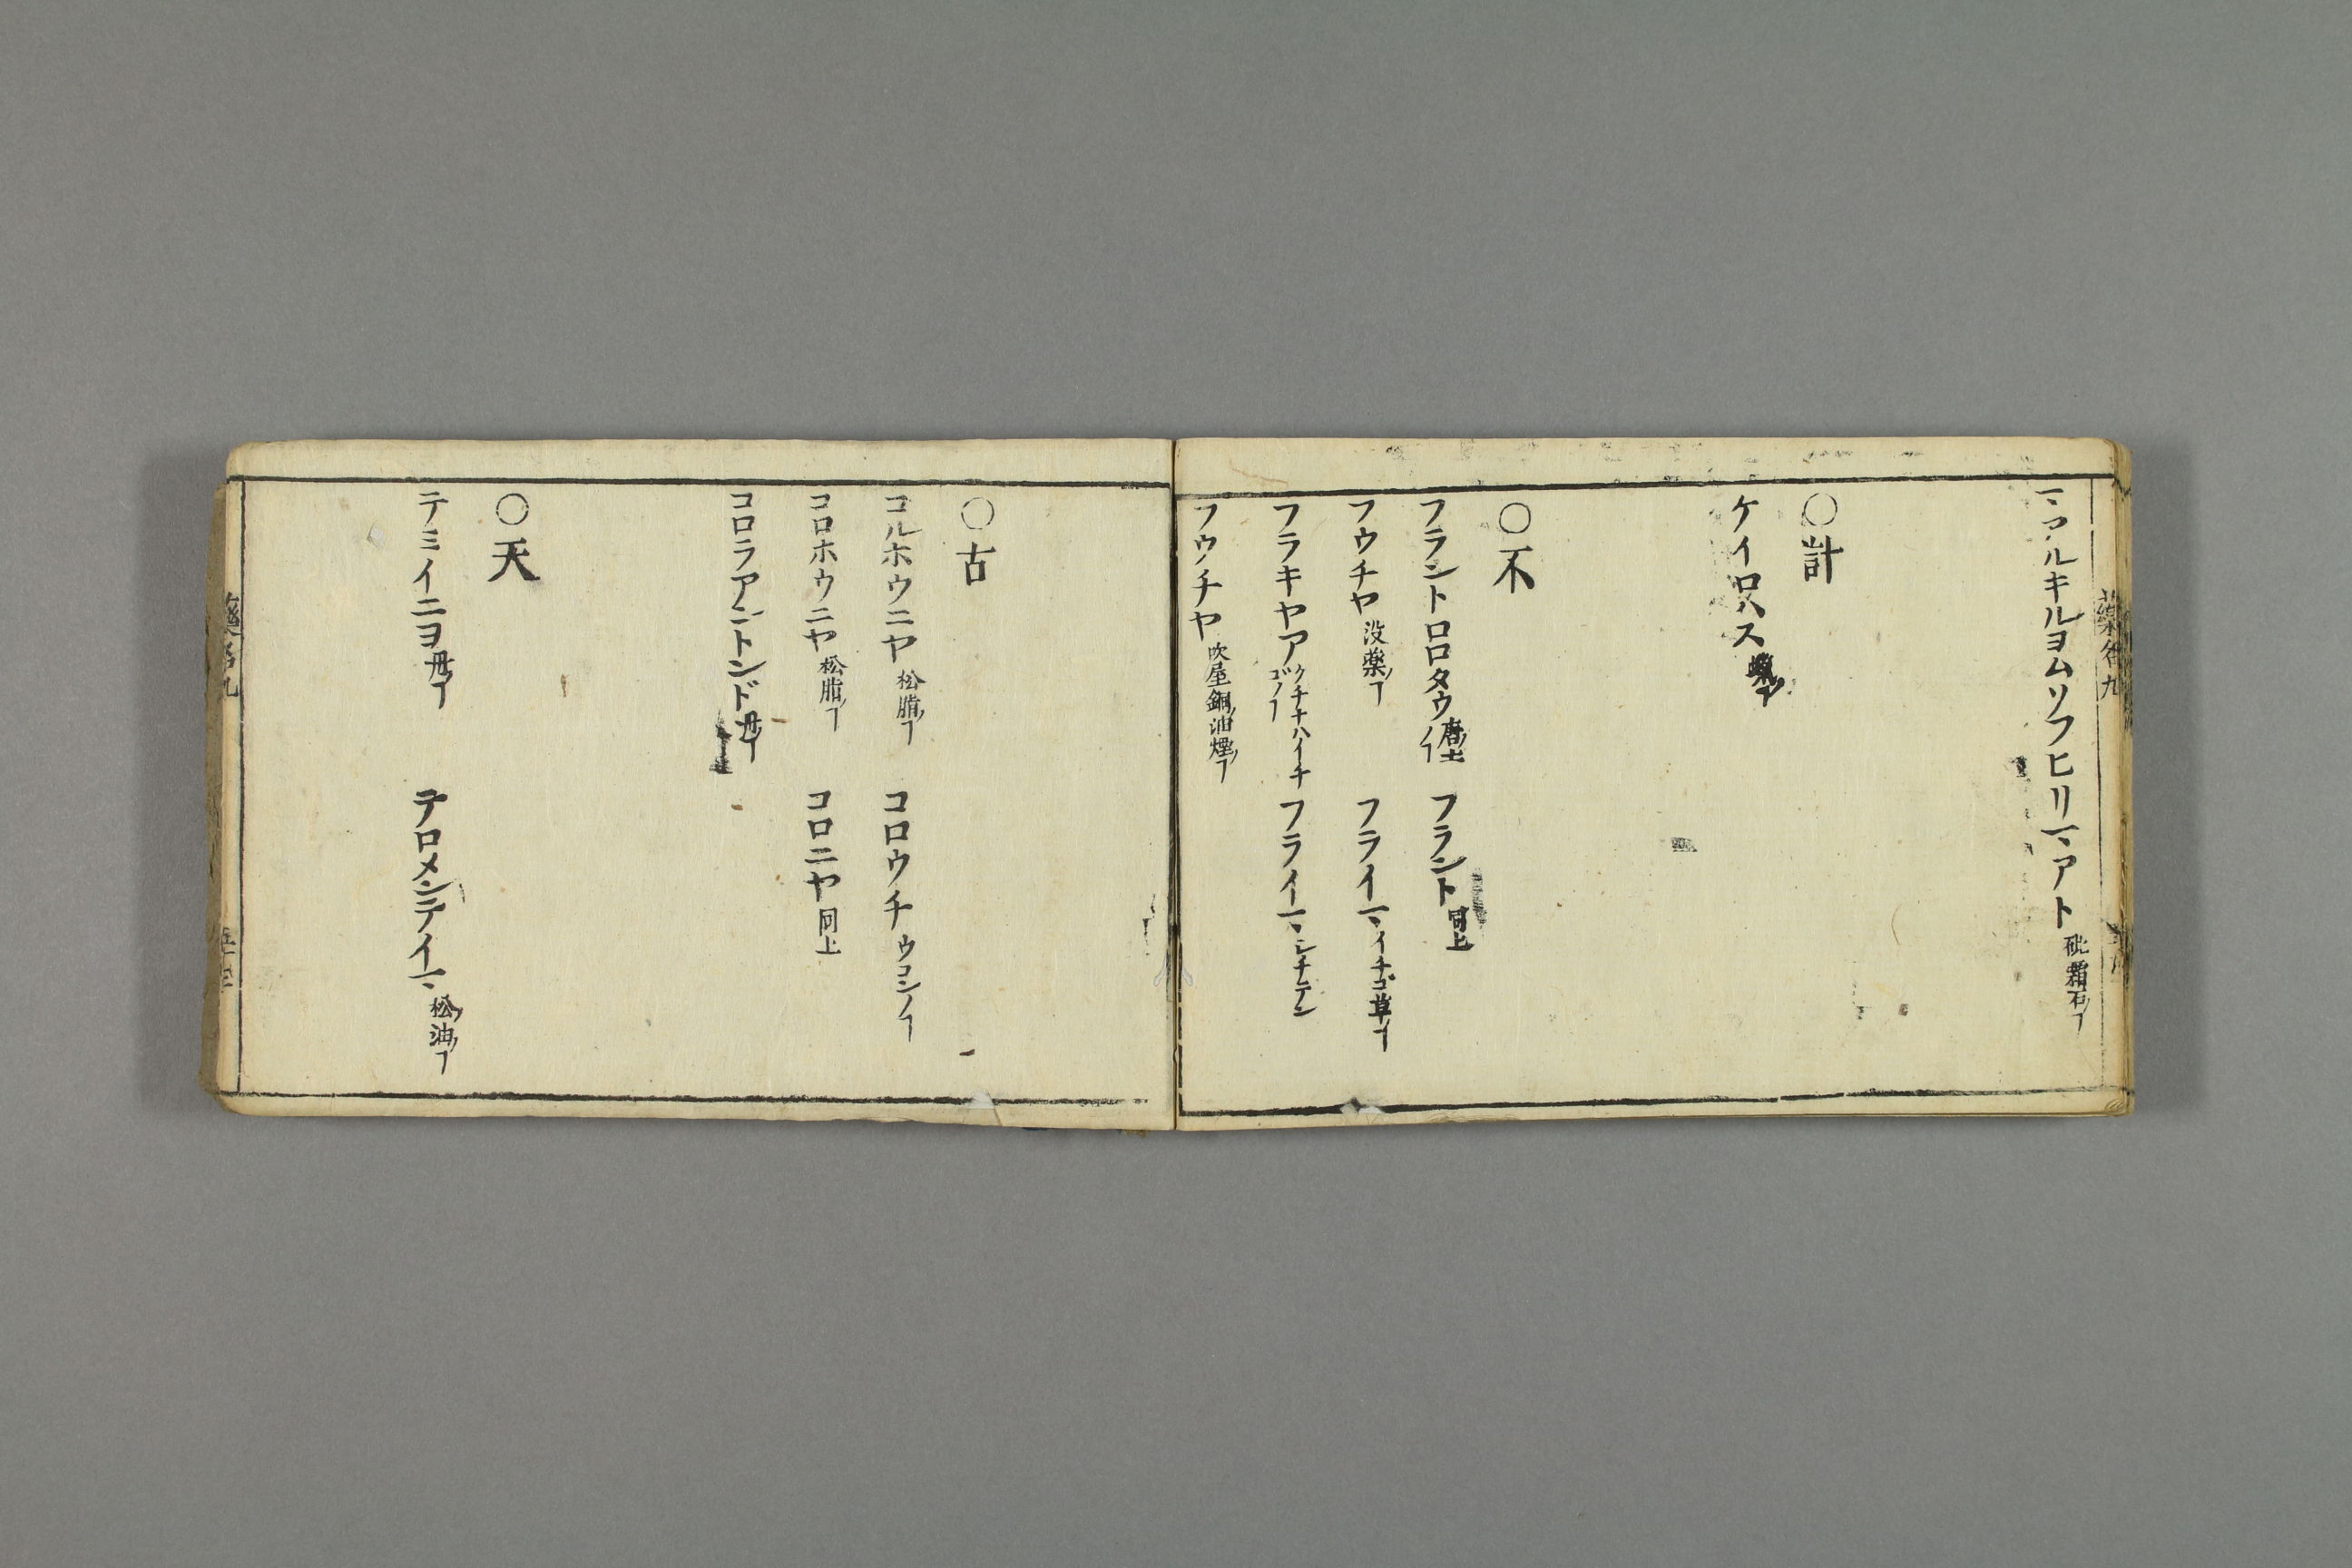 マアルキルヨムソフヒリマアト 砒霜石ノヿ
〇計
ケイロス
〇不
フラントロロタウ フラント 同上
フウチヤ 没薬ノヿ フライマ イチゴ草ノヿ
フラキヤア クチナハイチゴノヿ フライマ シチテン
フウチヤ 吹屋銅油煙ノヿ
〇古
コルホウニヤ 松脂ノヿ コロウチ ウコンノヿ
コロホウニヤ 松脂ノヿ コロニヤ 同上
コロラアントンド 丹ノヿ
〇天
テミイニヨ 丹ノヿ テロメンテイマ 松油ノヿ